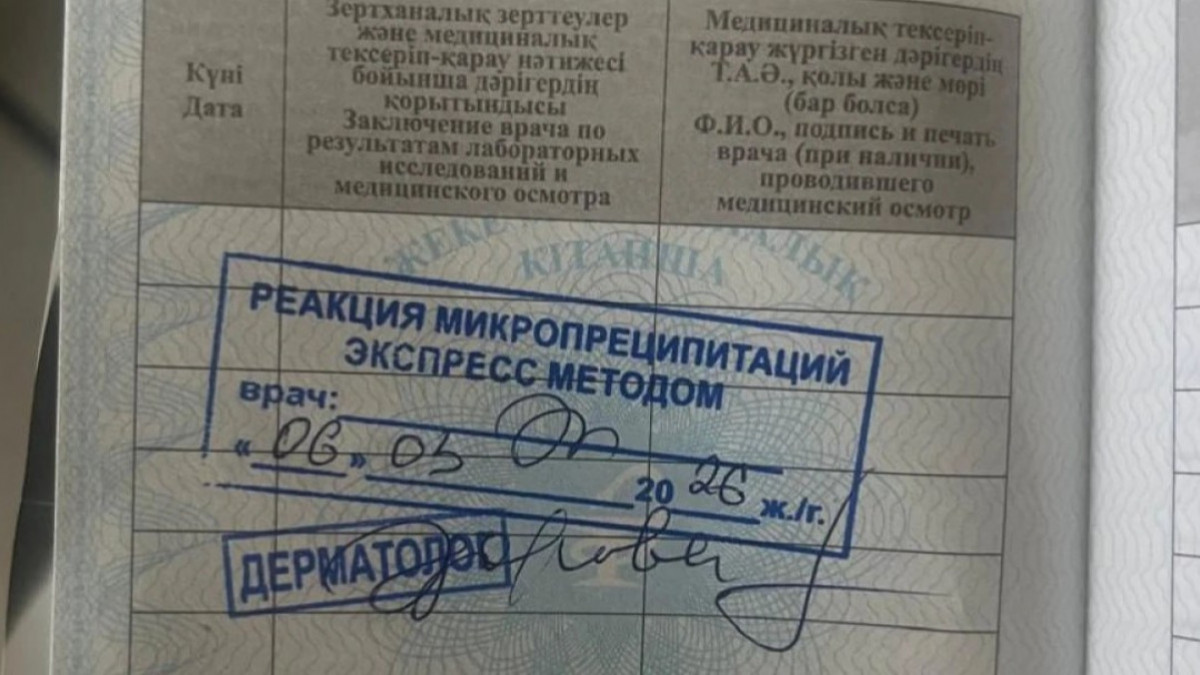 Күні
Дата
Зертханалық зерттеулер
және медициналық
тексеріп-қарау нәтижесі
бойынша дәрігердің
қорытындысы
Заключение врача по
результатам лабораторных
исследований и
медицинского осмотра
Медициналық тексеріп-
қарау жүргізген дәрігердің
Т.А.Ә., қолы және мөрі
(бар болса)
Ф.И.О., подпись и печать
врача (при наличии),
проводившего
медицинский осмотр
ЖЕКЕ
КІТАПША
РЕАКЦИЯ МИКРОПРЕЦИПИТАЦИЙ
ЭКСПРЕСС МЕТОДОМ
врач:
« 06 » 03 20 26 ж./г.
ДЕРМАТОЛОГ